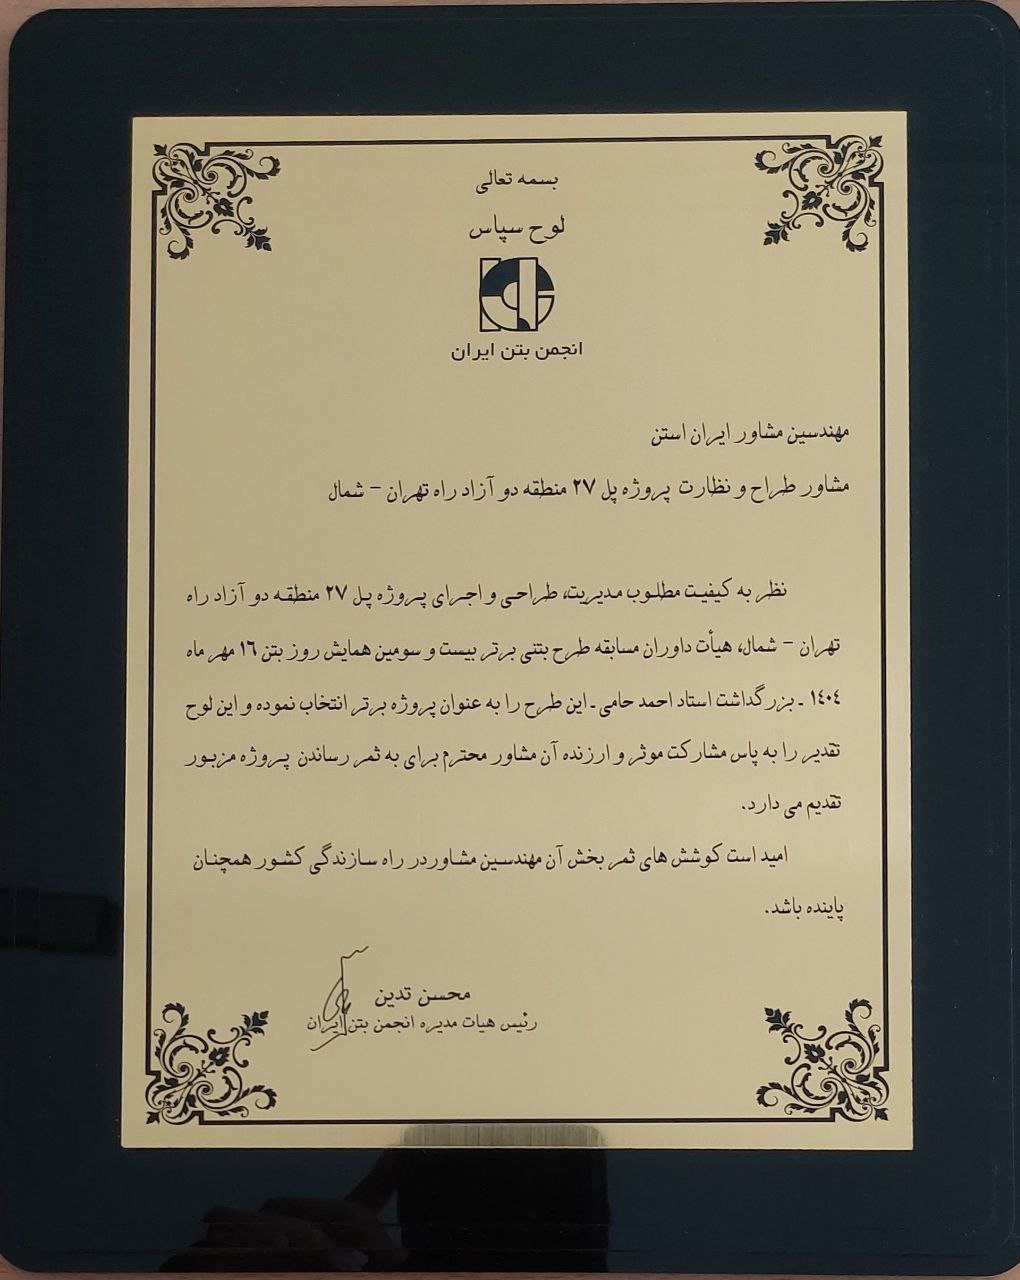 بسمه تعالی
لوح سپاس
انجمن بتن ایران
مهندسین مشاور ایران استن
مشاور طراح و نظارت پروژه پل ۲۷ منطقه دو آزاد راه تهران - شمال
نظر به کیفیت مطلوب مدیریت، طراحی و اجرای پروژه پل ۲۷ منطقه دو آزاد راه
تهران - شمال، هیأت داوران مسابقه طرح بتنی برتر بیست و سومین همایش روز بتن ۱۶ مهر ماه
۱۴۰۴ - بزرگداشت استاد احمد حامی - این طرح را به عنوان پروژه برتر انتخاب نموده و این لوح
تقدیر را به پاس مشارکت موثر و ارزنده آن مشاور محترم برای به ثمر رساندن پروژه مزبور
تقدیم می دارد.
امید است کوشش های ثمر بخش آن مهندسین مشاوردر راه سازندگی کشور همچنان
پاینده باشد.
محسن تدین
رئیس هیات مدیره انجمن بتن ایران